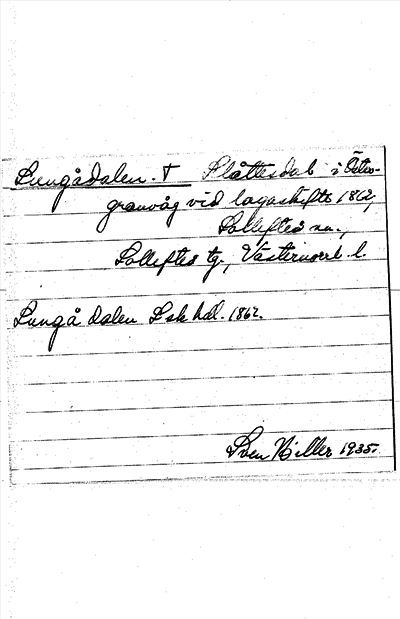 Lungådalen. T Slåttesdal i Öster-
granvåg vid lagaskifte 1862,
Sollefteå sn.,
Sollefteå tg., Västernorrl. l.
Lungå dalen Lsk hdl. 1862.
Sven Hiller 1935.